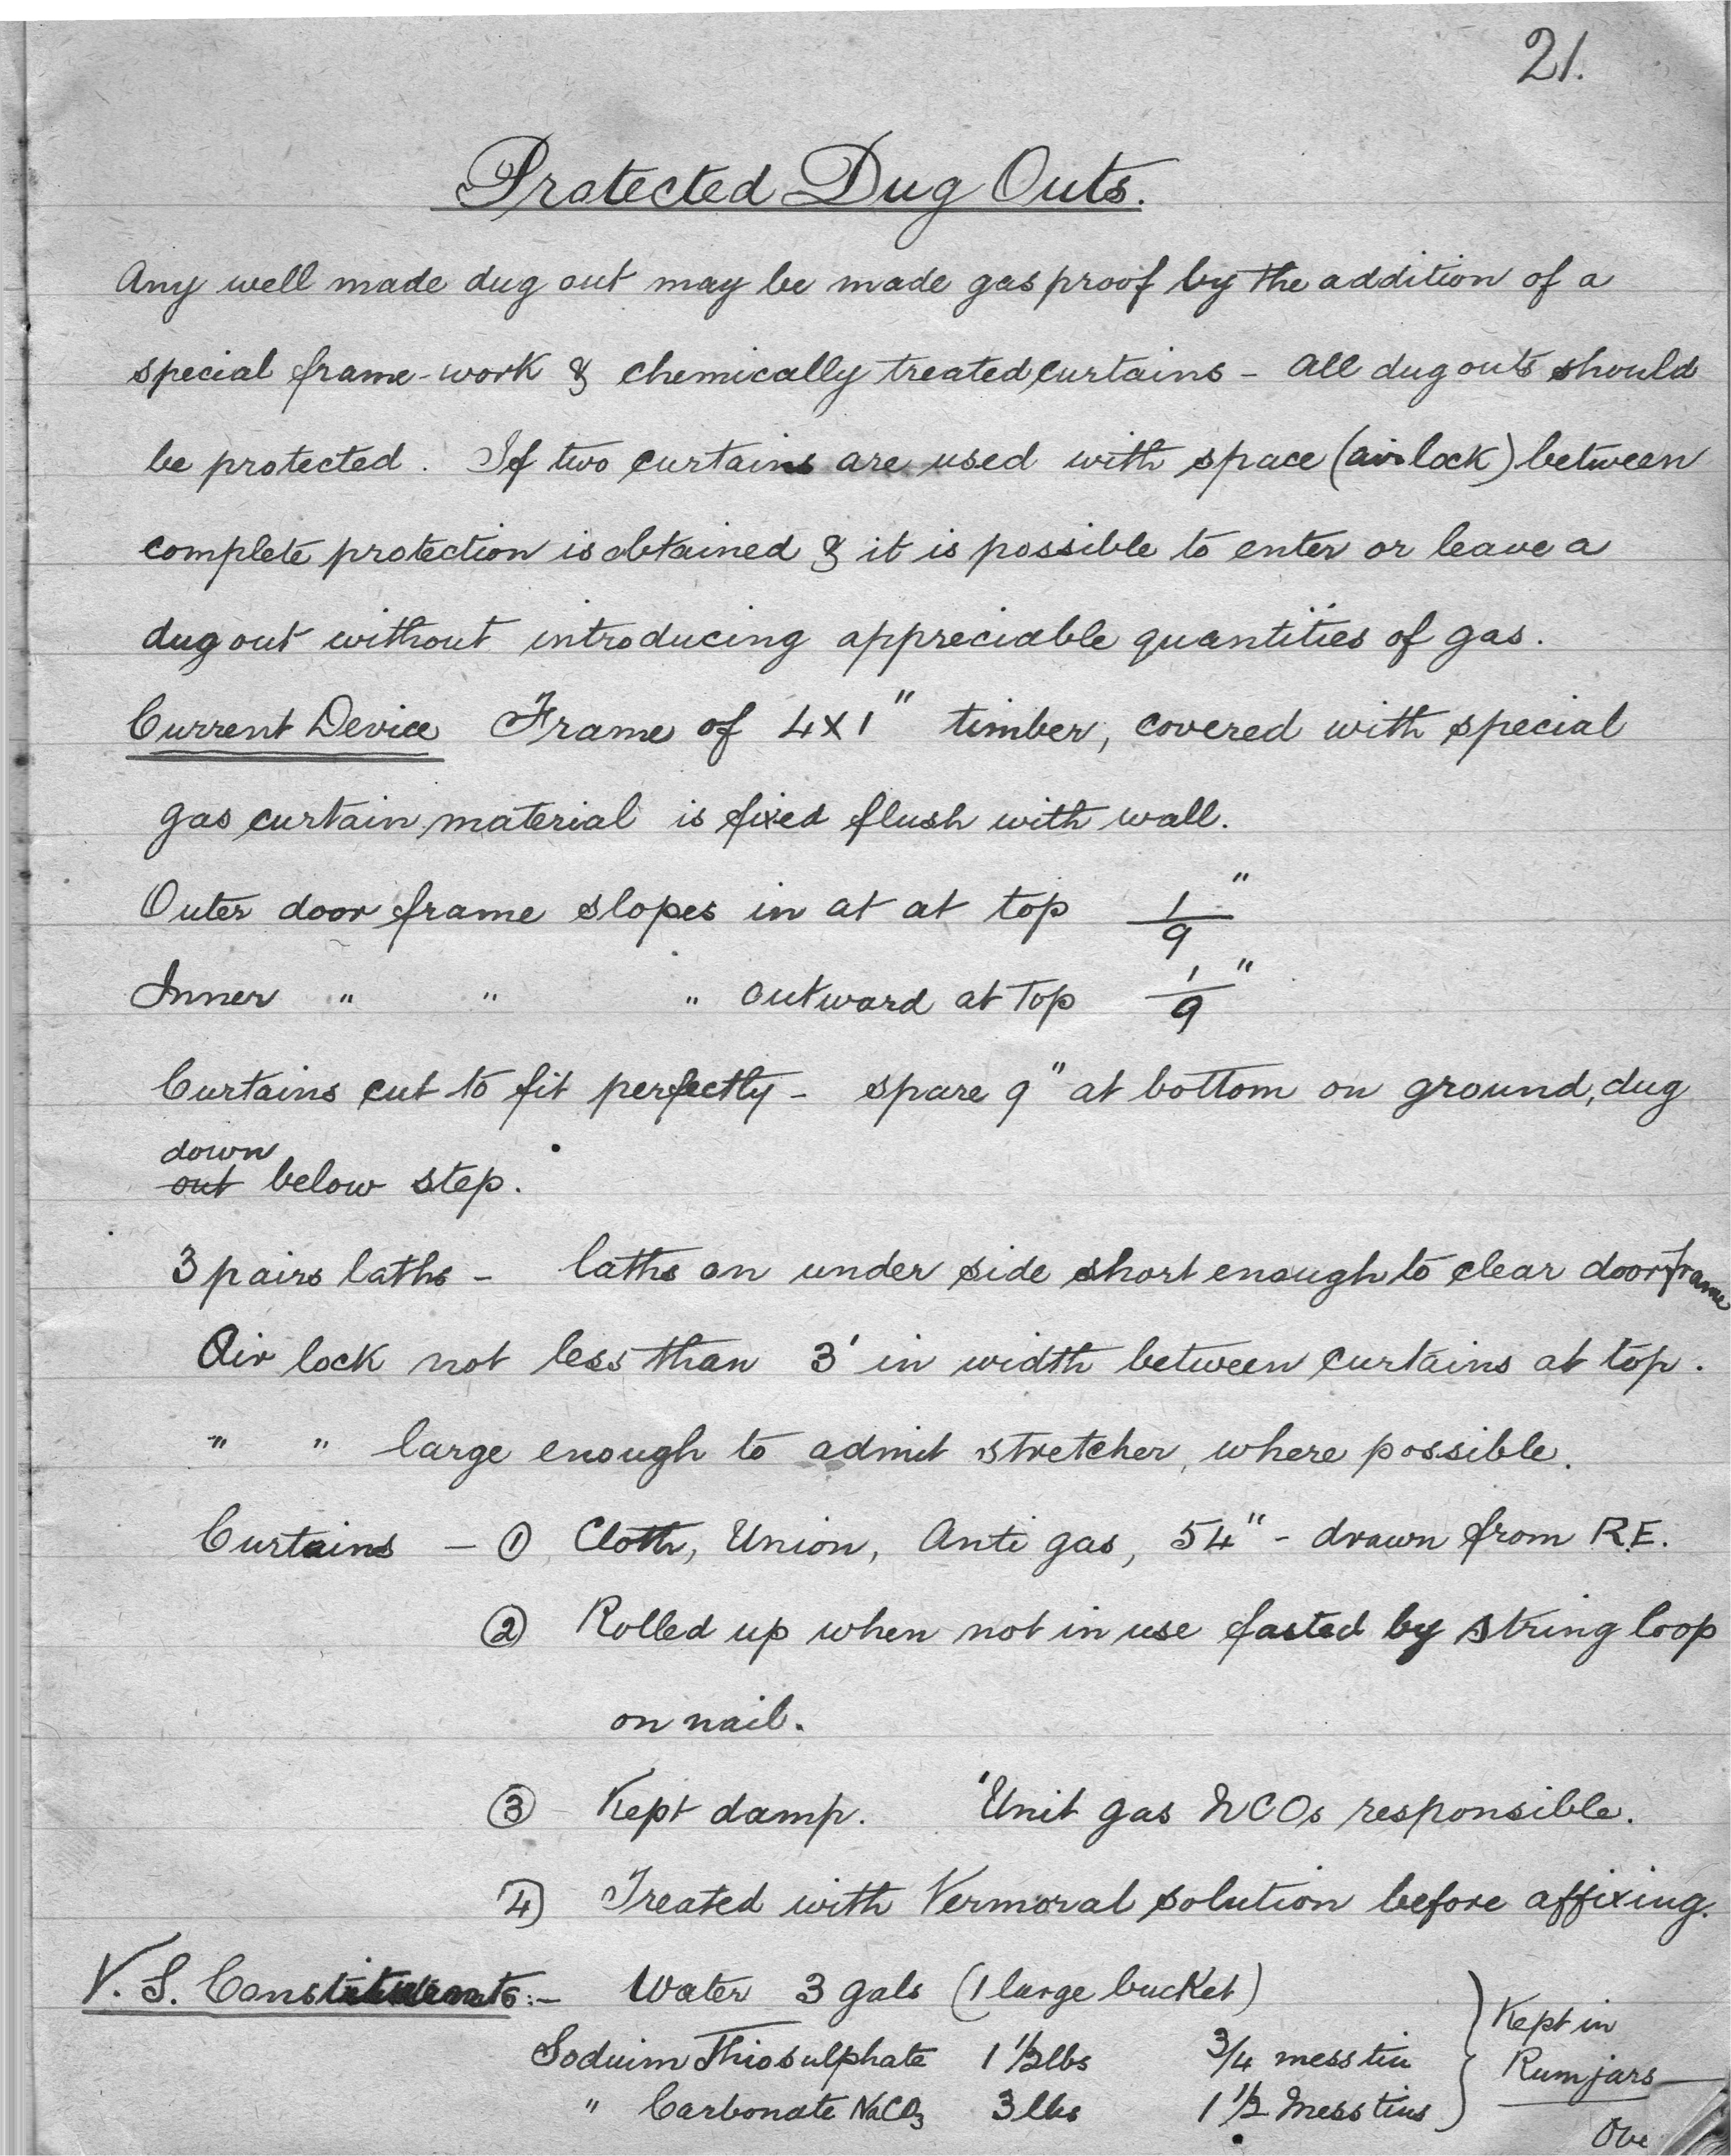 21.
Protected Dug Outs.
Any well made dug out may be made gas proof by the addition of a
special frame-work & chemically treated curtains - all dug outs should
be protected. If two curtains are used with space (airlock) between
complete protection is obtained & it is possible to enter or leave a
dug out without introducing appreciable quantities of gas.
Current Device Frame of 4x1" timber, covered with special
gas curtain material is fixed flush with wall.
Outer door frame slopes in at at top 1/9"
Inner " " " outward at top 1/9"
Curtains cut to fit perfectly - spare 9" at bottom on ground, dug
down
out below step.
3 pairs laths - laths on under side short enough to clear door frame
Air lock not less than 3' in width between curtains at top.
" " large enough to admit stretcher, where possible.
Curtains - ① Cloth, Union, Anti gas, 54" - drawn from R.E.
② Rolled up when not in use fasted by string loop
on nail.
③ Kept damp. Unit gas NCOs responsible.
④ Treated with Vermoral solution before affixing.
V.S. Constituents:- Water 3 gals (1 large bucket)
Soduim Thiosulphate 1 1/2 lbs 3/4 mess tin
" Carbonate NaCO3 3 lbs 1 1/2 Mess tins
Kept in
Rum jars